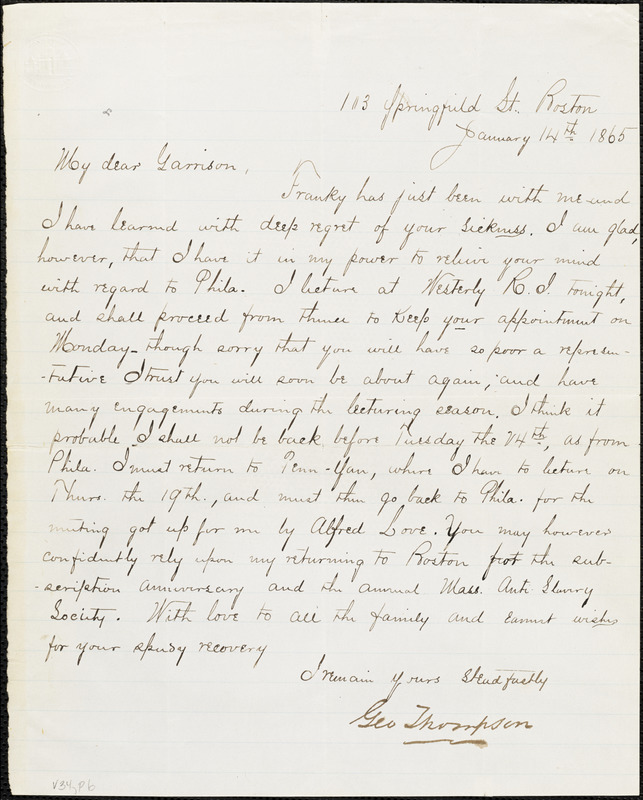 113 Springfield St. Boston
January 14th 1865
My dear Garrison,
Franky has just been with me and
I have learned with deep regret of your sickness. I am glad,
however, that I have it in my power to relieve your mind
with regard to Phila. I lecture at Westerly R. I. tonight,
and shall proceed from thence to keep your appointment on
Monday – though sorry that you will have so poor a represen-
-tative I trust you will soon be about again, and have
many engagements during the lecturing season. I think it
probable I shall not be back before Tuesday the 24th, as from
Phila. I must return to Penn-Yan, where I have to lecture on
Thurs. the 19th., and must then go back to Phila. for the
meeting got up for me by Alfred Love. You may however
confidently rely upon my returning to Boston for the sub-
-scription anniversary and the annual Mass. Anti Slavery
Society. With love to all the family and earnest wishes
for your speedy recovery
I remain yours steadfastly
Geo Thompson
V34, P.6